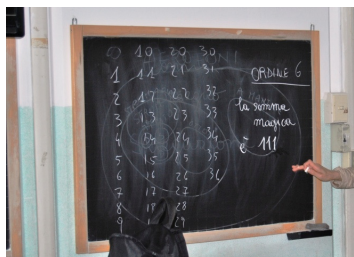 0 10 20 30
1 11 21 31
2 12 22 32
3 13 23 33
4 14 24 34
5 15 25 35
6 16 26 36
7 17 27
8 18 28
9 29
ORDINE 6
la somma
magica
è 111